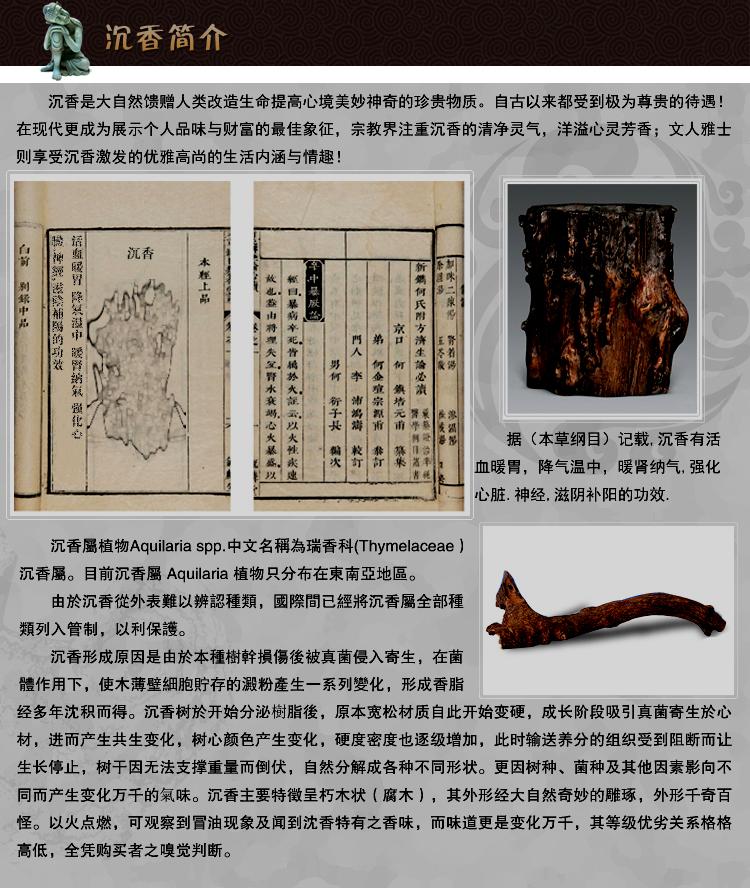 沉香简介
沉香是大自然馈赠人类改造生命提高心境美妙神奇的珍贵物质。自古以来都受到极为尊贵的待遇！
在现代更成为展示个人品味与财富的最佳象征，宗教界注重沉香的清净灵气，洋溢心灵芳香；文人雅士
则享受沉香激发的优雅高尚的生活内涵与情趣！
白前 剝錄中品
沉香
活血暖胃 降氣溫中 暖腎纳氣 强化心
臟 神經 滋陰補陽的功效
本經上品
新鐫何氏附方濟生論必讀
京口 何 鎮培元甫 纂集
弟 何金瑄宗源甫 叅訂
門人 李 沛鴻濤 較訂
男何 衍子長 編次
卒中暴厥論
經曰暴病卒死皆屬於火註云以火性疾速
故也蓋由將理失宜腎水衰竭心火暴盛以
据（本草纲目）记载,沉香有活
血暖胃，降气温中，暖肾纳气,强化
心脏.神经,滋阴补阳的功效.
沉香屬植物Aquilaria spp.中文名稱為瑞香科(Thymelaceae )
沉香屬。目前沉香屬 Aquilaria 植物只分布在東南亞地區。
由於沉香從外表難以辨認種類，國際間已經將沉香屬全部種
類列入管制，以利保護。
沉香形成原因是由於本種樹幹損傷後被真菌侵入寄生，在菌
體作用下，使木薄壁細胞貯存的澱粉產生一系列變化，形成香脂
经多年沈积而得。沉香树於开始分泌樹脂後，原本宽松材质自此开始变硬，成长阶段吸引真菌寄生於心
材，进而产生共生变化，树心颜色产生变化，硬度密度也逐级增加，此时输送养分的组织受到阻断而让
生长停止，树干因无法支撑重量而倒伏，自然分解成各种不同形状。更因树种、菌种及其他因素影向不
同而产生变化万千的氣味。沉香主要特徵呈朽木状（腐木），其外形经大自然奇妙的雕琢，外形千奇百
怪。以火点燃，可观察到冒油现象及闻到沈香特有之香味，而味道更是变化万千，其等级优劣关系格格
高低，全凭购买者之嗅觉判断。